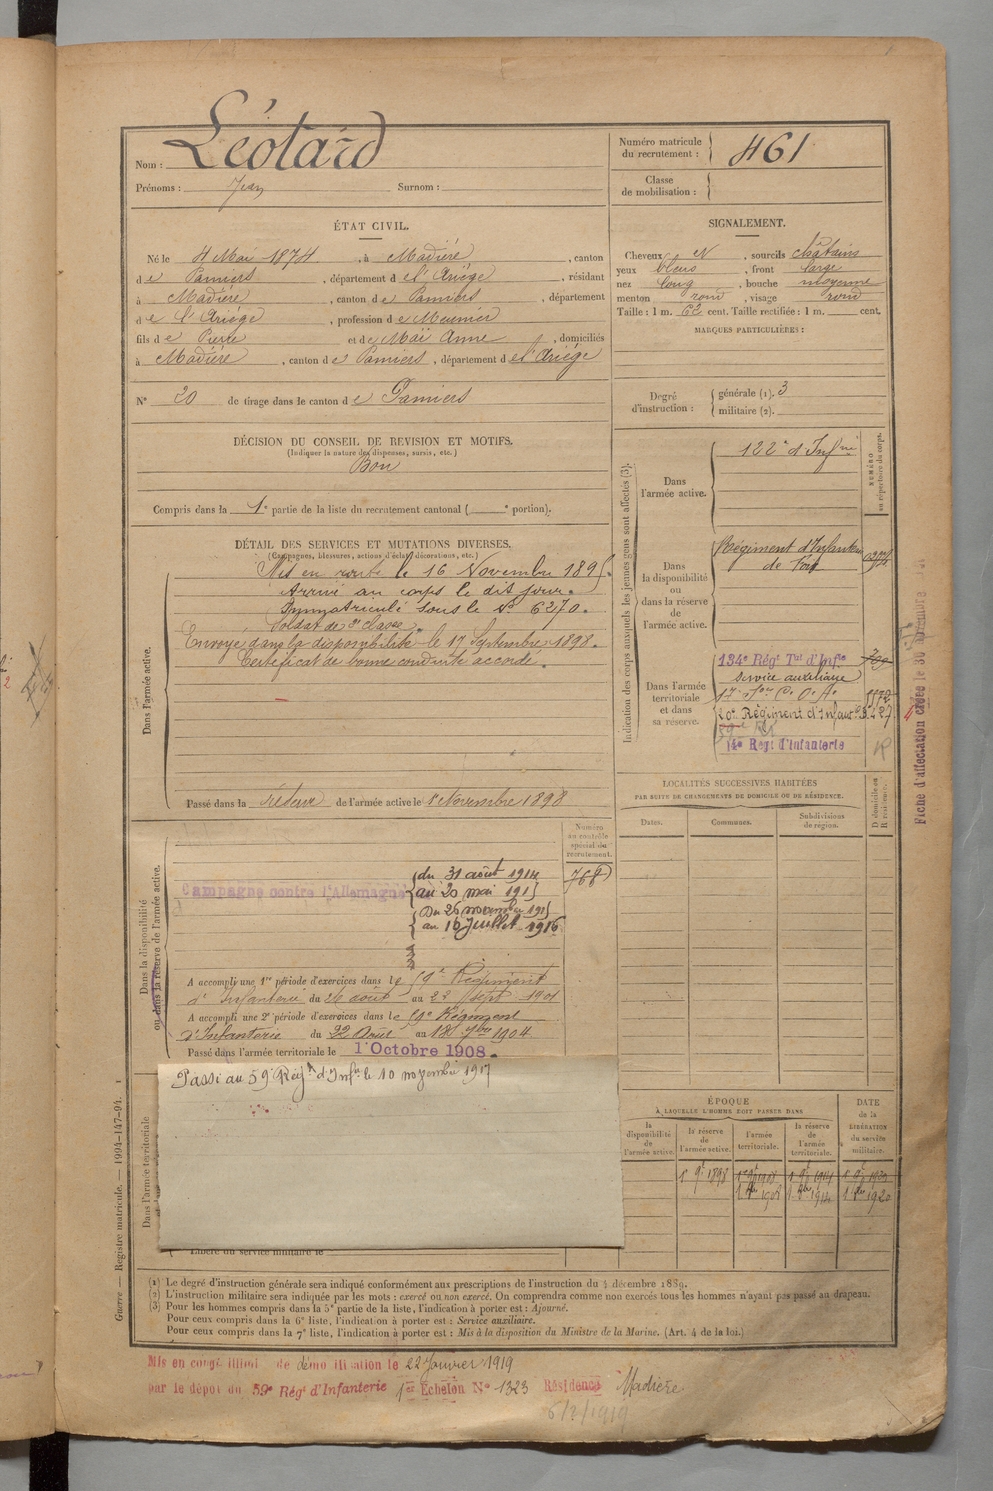 Nom : Léotard
Prénoms : Jean Surnom :
Numéro matricule du recrutement : 461
Classe de mobilisation :
ÉTAT CIVIL.
Né le 4 Mai 1874, à Madière, canton
de Pamiers, département de l'Ariège, résidant
à Madière, canton de Pamiers, département
de l'Ariège, profession de Meunier
fils de Pierre et de Maï Anne, domiciliés
à Madière, canton de Pamiers, département de l'Ariège
N° 20 de tirage dans le canton de Pamiers
SIGNALEMENT.
Cheveux N, sourcils châtains
yeux bleus, front large
nez long, bouche moyenne
menton rond, visage rond
Taille : 1 m. 62 cent. Taille rectifiée : 1 m. cent.
MARQUES PARTICULIÈRES :
Degré d'instruction : générale (1). 3
militaire (2).
DÉCISION DU CONSEIL DE REVISION ET MOTIFS.
(Indiquer la nature des dispenses, sursis, etc.)
Bon
Compris dans la 1e partie de la liste du recrutement cantonal ( e portion).
DÉTAIL DES SERVICES ET MUTATIONS DIVERSES.
(Campagnes, blessures, actions d'éclat, décorations, etc.)
Dans l'armée active.
Mis en route le 16 Novembre 1895.
Arrivé au corps le dit jour.
Immatriculé sous le N° 6270.
Soldat de 2e classe.
Envoyé dans la disponibilité le 17 Septembre 1898.
Certificat de bonne conduite accordé.
Passé dans la réserve de l'armée active le 1er Novembre 1898
Indication des corps auxquels les jeunes gens sont affectés (3).
NUMÉRO au répertoire du corps.
Dans l'armée active.
122e d'Infrie
Dans la disponibilité ou dans la réserve de l'armée active.
Régiment d'Infanterie de Foix
Dans l'armée territoriale et dans sa réserve.
134e Régt Tal d'Infie
Service auxiliaire
20e Régiment d'Infanterie
59e
14e Régt d'Infanterie
Fiche d'affectation créée le 30 novembre
LOCALITÉS SUCCESSIVES HABITÉES
PAR SUITE DE CHANGEMENTS DE DOMICILE OU DE RÉSIDENCE.
Dates. Communes. Subdivisions de région. D domicile ou R résidence.
Numéro au contrôle spécial du recrutement.
768
Dans la disponibilité ou dans la réserve de l'armée active.
Campagne contre l'Allemagne
du 31 août 1914
au 20 mai 1915
Du 26 novembre 1915
au 16 Juillet 1916
A accompli une 1re période d'exercices dans le 59e Régiment
d'Infanterie du 26 août au 22 sept 1901
A accompli une 2e période d'exercices dans le 59e Régiment
d'Infanterie du 22 Août au 18 7bre 1904
Passé dans l'armée territoriale le 1er Octobre 1908.
Dans l'armée territoriale
Passé au 59e Régt d'Infie le 10 novembre 1917
Libéré du service militaire le
ÉPOQUE
À LAQUELLE L'HOMME DOIT PASSER DANS
la disponibilité de l'armée active.
la réserve de l'armée active.
l'armée territoriale.
la réserve de l'armée territoriale.
DATE de la LIBÉRATION du service militaire.
(1) Le degré d'instruction générale sera indiqué conformément aux prescriptions de l'instruction du 4 décembre 1889.
(2) L'instruction militaire sera indiquée par les mots : exercé ou non exercé. On comprendra comme non exercés tous les hommes n'ayant pas passé au drapeau.
(3) Pour les hommes compris dans la 5e partie de la liste, l'indication à porter est : Ajourné.
Pour ceux compris dans la 6e liste, l'indication à porter est : Service auxiliaire.
Pour ceux compris dans la 7e liste, l'indication à porter est : Mis à la disposition du Ministre de la Marine. (Art. 4 de la loi.)
Guerre — Registre matricule. — 1994-147-94.
Mis en congé illimité de démobilisation le 22 Janvier 1919
par le dépôt du 59e Régt d'Infanterie 1er Échelon N° 1323 Résidence Madière
6/2/1919